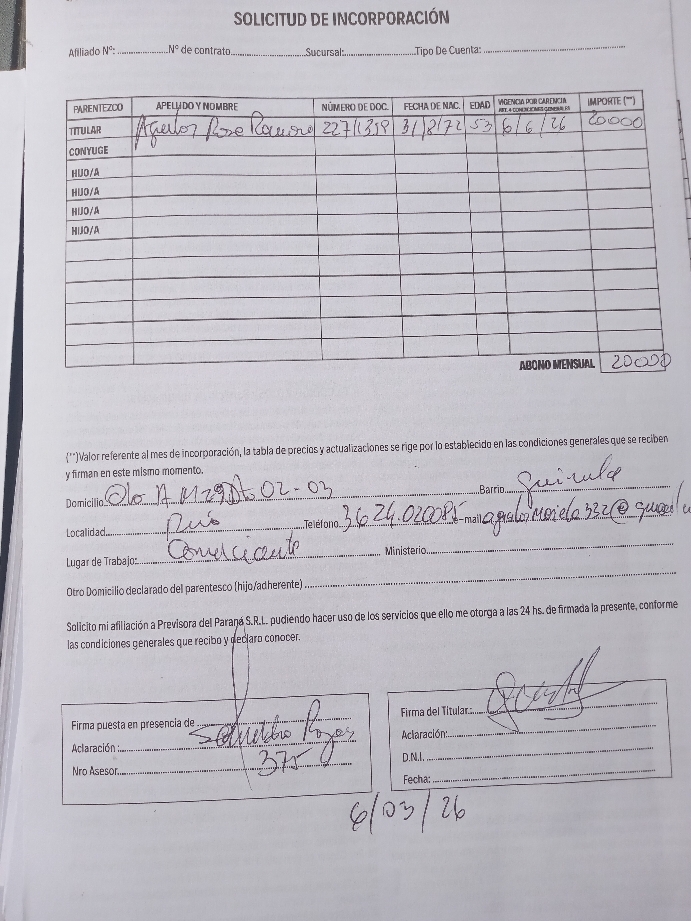 SOLICITUD DE INCORPORACIÓN
Afiliado Nº: Nº de contrato Sucursal: Tipo De Cuenta:
PARENTEZCO APELLIDO Y NOMBRE NÚMERO DE DOC. FECHA DE NAC. EDAD VIGENCIA POR CARENCIA ART. 4 CONDICIONES GENERALES IMPORTE (**)
TITULAR Aguilar Rose Ramona 31/8/72 53 6/6/26 20000
CONYUGE
HIJO/A
HIJO/A
HIJO/A
HIJO/A
ABONO MENSUAL 20000
(**)Valor referente al mes de incorporación, la tabla de precios y actualizaciones se rige por lo establecido en las condiciones generales que se reciben
y firman en este mismo momento.
Domicilio 02-03 Barrio
Localidad Teléfono 3624-020085 -mail
Lugar de Trabajo: Comerciante Ministerio
Otro Domicilio declarado del parentesco (hijo/adherente)
Solicito mi afiliación a Previsora del Paraná S.R.L. pudiendo hacer uso de los servicios que ello me otorga a las 24 hs. de firmada la presente, conforme
las condiciones generales que recibo y declaro conocer.
Firma puesta en presencia de
Aclaración: Rojas
Nro Asesor 375
Firma del Titular:
Aclaración:
D.N.I.
Fecha:
6/03/26